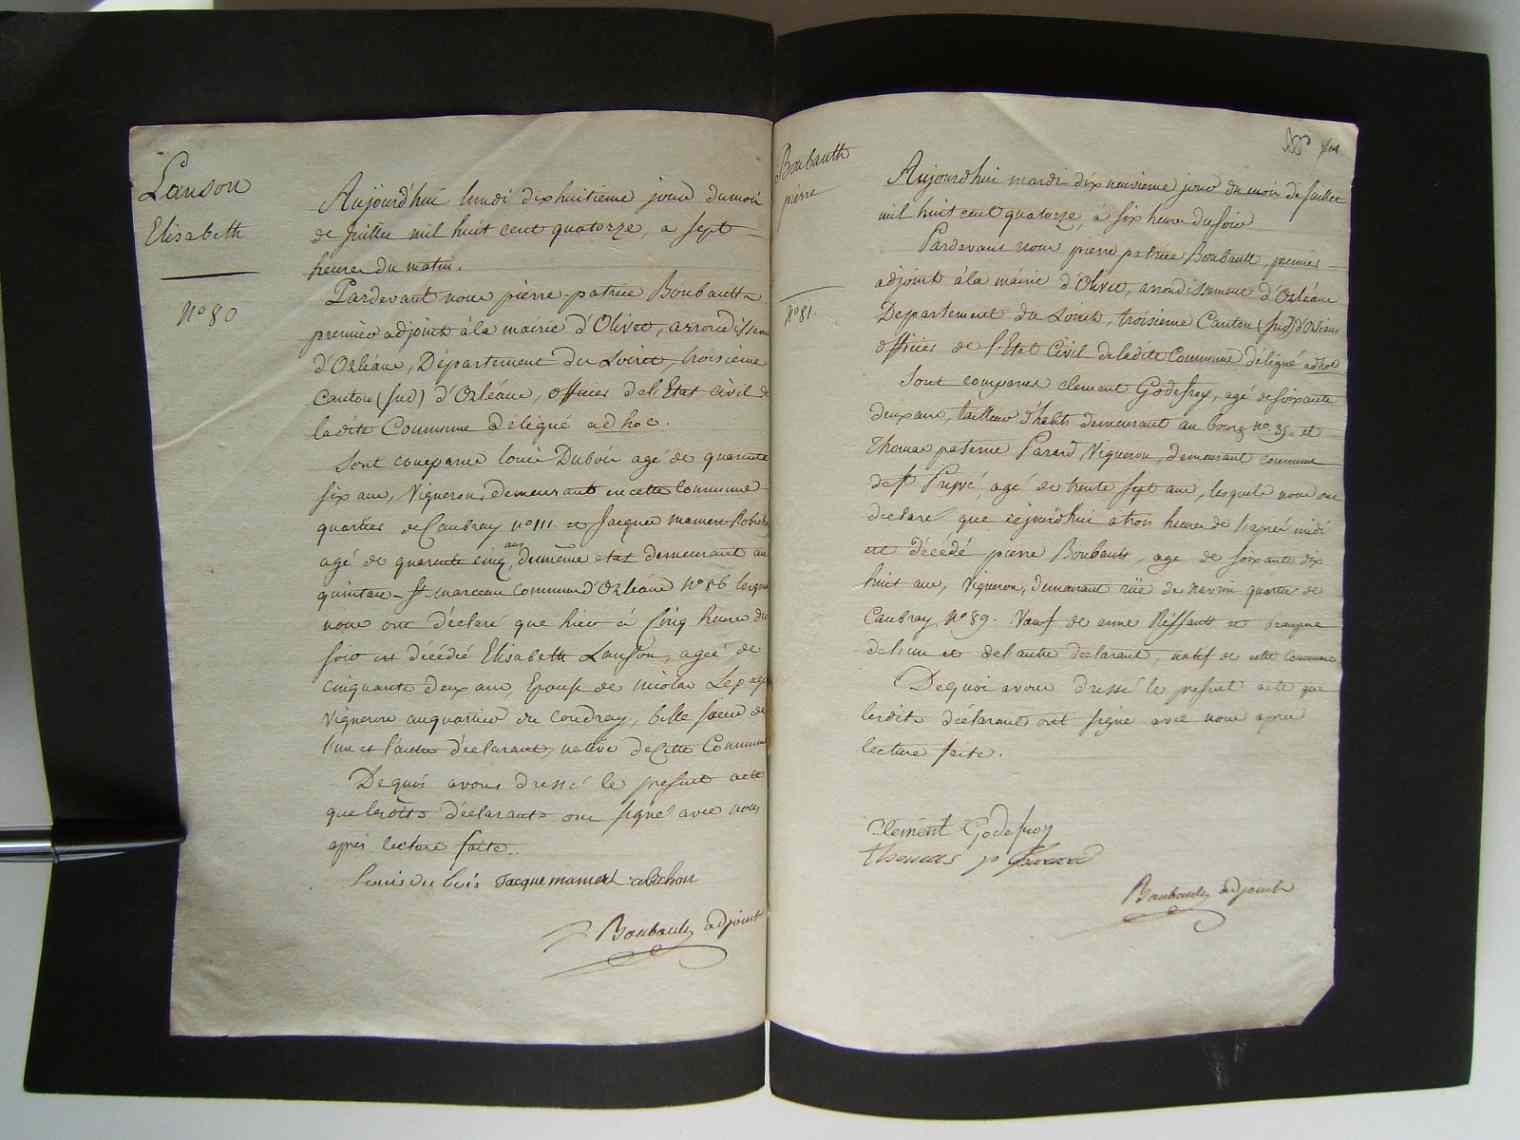 Lanson
Elisabeth
N° 80
Aujourd'hui lundi dixhuitieme jour du moi
de Juillet mil huit cent quatorze, a sept
heures du matin.
Pardevant nous pierre patrice Boubault
premier adjoint à la mairie d'Olivet, arrondissem
d'Orléans, Département du Loiret, troisieme
Canton (sud) d'Orléans, officier de l'Etat civil de
ladite Commune délégué ad hoc.
Sont comparus louis Dubois agé de quarante
six ans, Vigneron, demeurant en cette Commune
quartier de Caubray n° 111 et Jacques mamert Robichon
agé de quarente cinq ans, du même etat demeurant au
quintan St marceau commune d'Orléans N° 86 lesquels
nous ont déclaré que hier à cinq heures du
soir est décédée Elisabeth Lanson, agée de
cinquante deux ans, Epouse de nicolas Lepage
Vigneron au quartier du Coudray, belle soeur de
l'un et l'autre déclarant, native de cette Commune
De quoi avons dressé le présent acte
que lesdits déclarants ont signé avec nous
après lecture faite.
Louis du bois Jacque mamert
Boubault adjoint
Boubault
pierre
N° 81.
Aujourdhui mardi dix neuvieme jour du mois de Juillet
mil huit cent quatorze, à six heures du soir
Pardevant nous pierre patrice Boubault, premier
adjoint à la mairie d'Olivet, arrondissement d'Orléans
Département du Loiret, troisieme Canton (sud) d'Orléans
officier de l'Etat Civil de ladite Commune délégué ad hoc
Sont comparus clement Godefroy, agé de soixante
deux ans, tailleur d'habits demeurant au bourg n° 35. et
Thomas paterne Parard, Vigneron, demeurant commune
de St Privé, agé de trente sept ans, lesquels nous ont
declaré que cejourd'hui a trois heures de l'après midi
est décédé pierre Boubault, age de soixante dix
huit ans, Vigneron, demeurant rüe de quartier de
Caubray N° 89. Veuf de anne Riffault et
de l'un et de l'autre declarant, natif de cette Commune
De quoi avons dressé le present acte que
lesdits déclarans ont signé avec nous apres
lecture faite.
Clement Godefroy
thomas p
Boubault adjoint